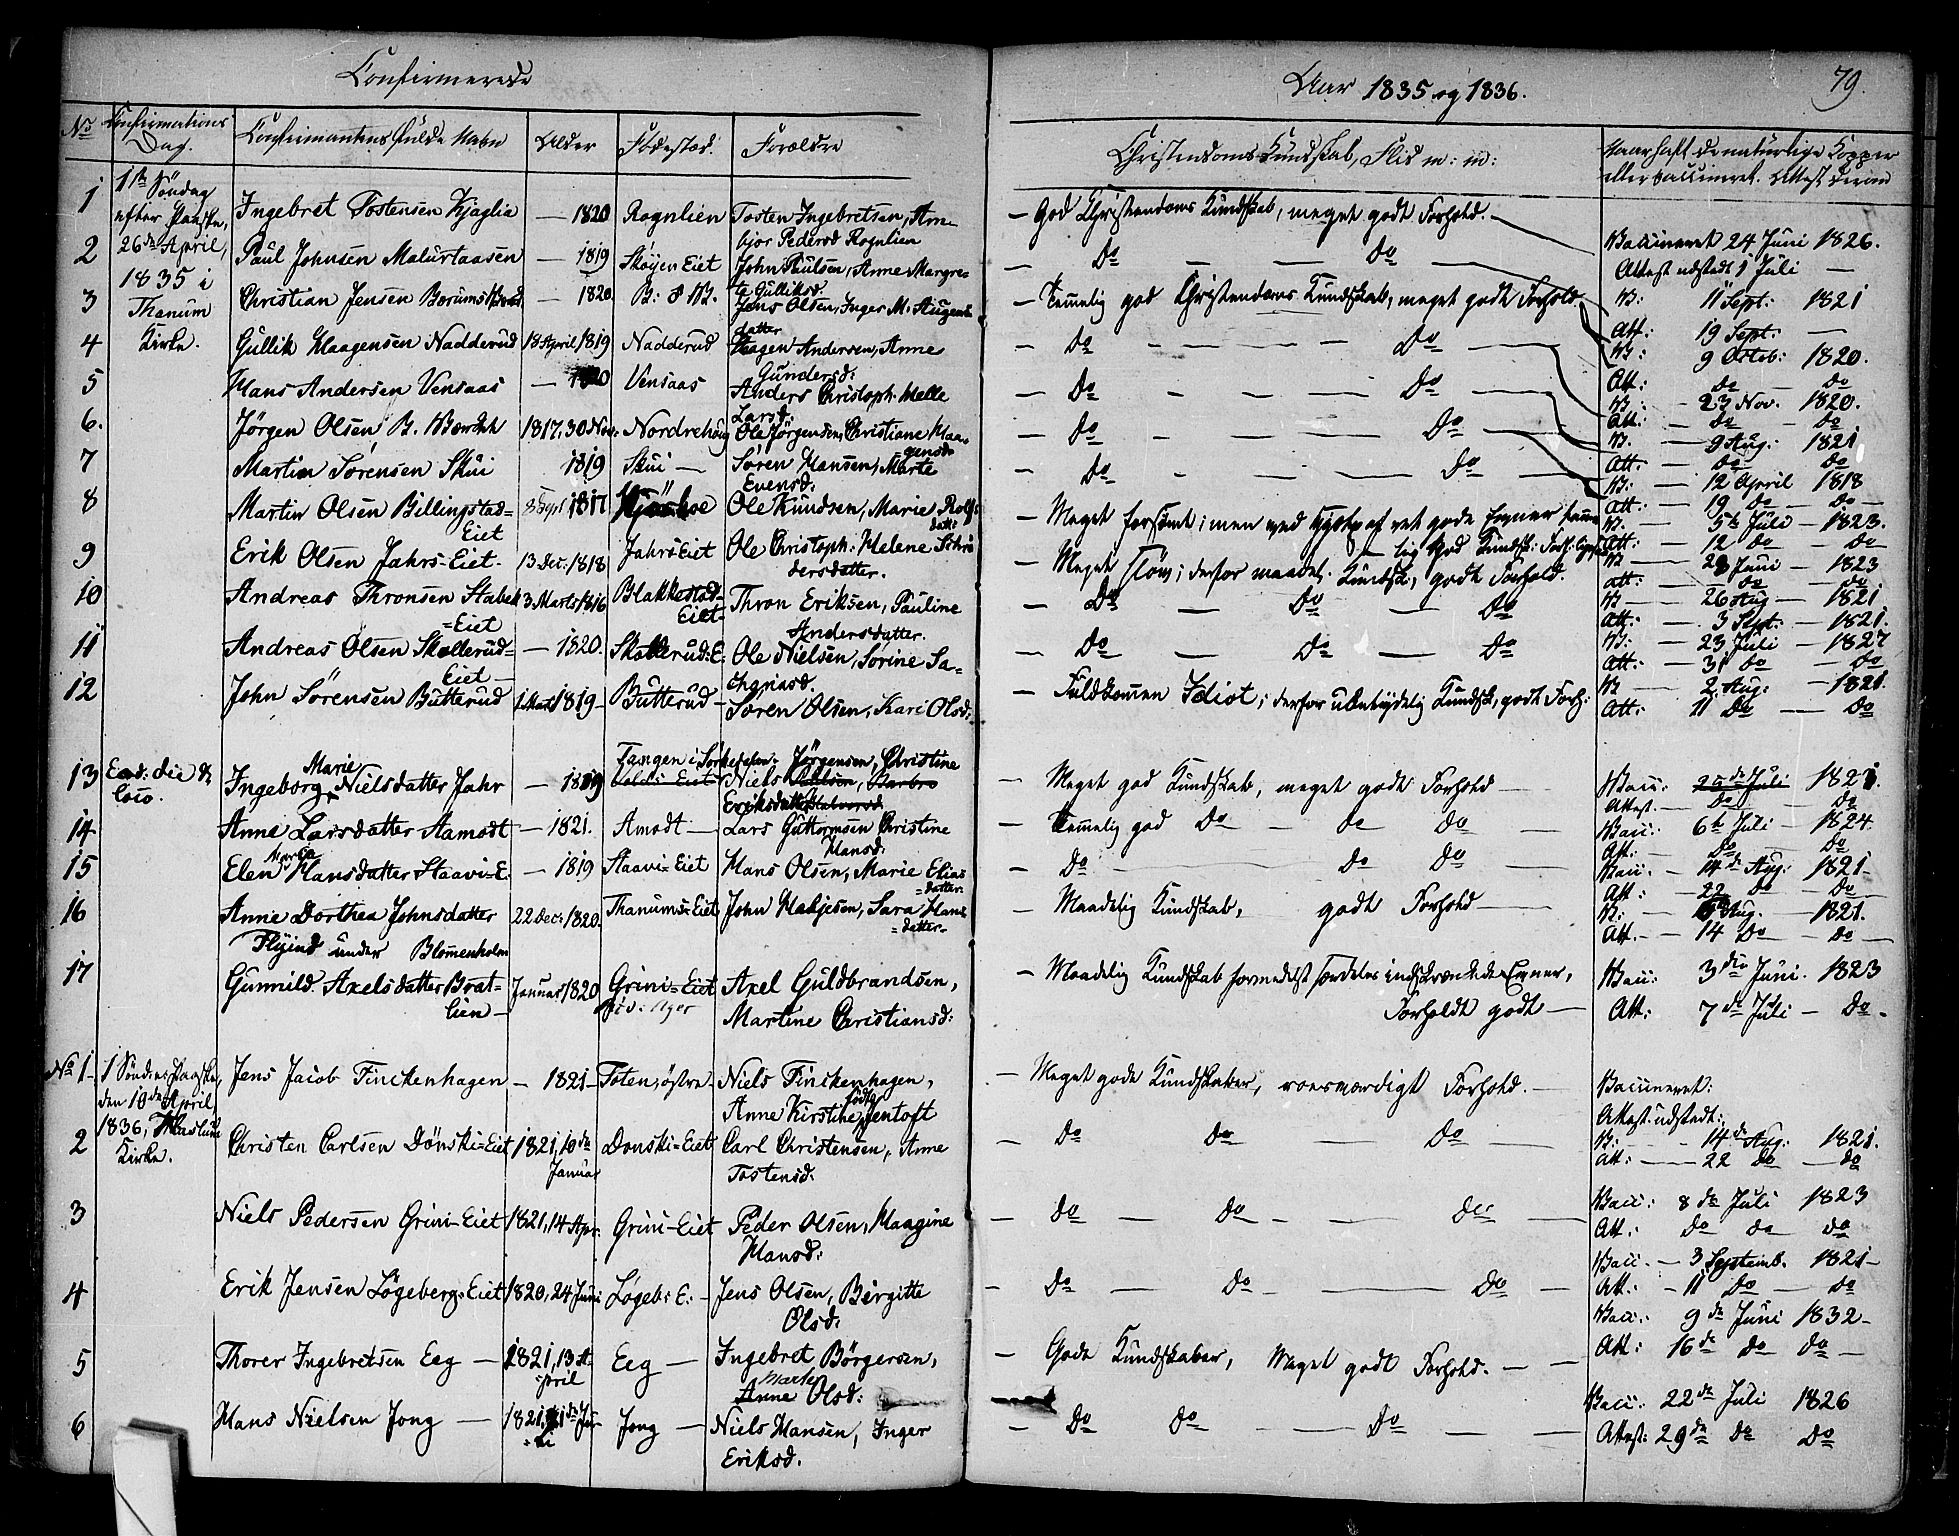 Confirmerede
Aar 1835 og 1836.
79.
No
Confirmations Dag.
Confirmantens fulde Navn
Alder
Födested.
Forældre
Christendoms Kundskab, Flid m: m:
1
1te Söndag
efter Paaske,
26de April,
1835 i
Thanum
Kirke.
Ingebret Tostensen Kjaglia
— 1820
Rognlien
Tosten Ingebretsen, Anne
bjor Pedersd Rognlien
— God Christendoms Kundskab, meget godt Forhold. —
Vaccineret 24 Juni 1826.
Attest udstedt 1 Juli —
2
Paul Johnsen Malurtaasen
— 1819
Skøyen Eiet
John Paulsen, Anne Margre-
te Gulliksd.
— Do — — Do —
V: 11 Sept: 1821
Att: 19 Sept. —
3
Christian Jensen Borums
— 1820.
Jens Olsen, Inger M. Haugens
datter
— Temelig god Christendoms Kundskab, meget godt Forhold.
V: 9 Octob: 1820.
Att: Do Do
4
Gullik Haagensen Nadderud
18 April 1819
Nadderud
Haagen Andersen, Anne
Gundersd:
— Do — — — — Do —
V: — 23 Nov. 1820.
Att: — Do — Do
5
Hans Andersen Vensaas
— 1820
Vensaas
Anders Christoph. Helle
Larsd:
— Do — — — Do —
V: — 9 Aug: 1821
Att: — Do Do
6.
Jörgen Olsen B. Værket
1817. 30 Nov:
Nordrehoug
Ole Jörgensen, Christiane Haa-
gensd
— Do — — — Do —
V: — 12 April 1818
Att: — 19 Do — Do —
7
Martin Sörensen Skui
1819
Skui —
Sören Hansen, Marte
Evensd:
— Do — — — Do —
V: — 5te Juli — 1823.
Att: — 12 Do — Do
8
Martin Olsen Billingstad=
Eiet
8 Sept 1817
Ole Knudsen, Marie Rolfs
datt:
— Meget forsømt; men ved af ret gode Evner
lig God Kundsk: Forh:
V — 28 Juni — 1823
att: — Do — Do
9
Erik Olsen Jahrs=Eiet.
13 Dec: 1818
Jahrs Eiet
Ole Christoph: Helene Schrö
dersdatter.
— Meget sløv; derfor maadel. Kundsk., godt Forhold.
V — 26 Aug — 1821
att: — 3 Sept: — 1821.
10
Andreas Thronsen Stabek
=Eiet
3 Marts 1816
Blakkestad=
Eiet
Thron Eriksen, Pauline
Andersdatter.
— Do — Do — Do
V: — 23 Juli — 1827
Att: — 31 Do — Do
11
Andreas Olsen Skollerud=
Eiet —
— 1820.
Skollerud: E:
Ole Nielsen, Sörine Sa-
chariasd:
— Do — Do — Do
V — 2 Aug: — 1821.
Att: — 11 Do — Do
12
John Sörensen Butterud
1 Marts 1819 —
Butterud —
Sören Olsen, Kari Olsd:
— Fuldkomen Idiot; derfor ubetydelig Kundsk., godt Forh:
13
Eod: die &
loco.
Ingeborg Marie Nielsdatter Jahr
— 1819
Tangen i Sørkedalen.
Jörgensen, Christine
Niels Olsen, Barbro
Eriksdatter Halvorsd
— Meget god Kundskab, meget godt Forhold —
Vacc: 20de Juli 1821.
Attest. — Do — Do
14
Anne Larsdatter Aamodt
— 1821.
Amodt —
Lars Guttormsen Christine
Hansd:
— Temelig god Do — do Do —
Vacc: 6te Juli — 1824.
Att: — Do — Do
15
Elen Maria Hansdatter Staavi=E.
— 1819
Staavi=Eiet
Hans Olsen, Marie Elias
=datter.
— Do — — Do Do —
Vacc: — 14de Aug: 1821 —
Att: — 22 Do — Do —
16
Anne Dorthea Johnsdatter
Flyind under Blomenholm
22 Dec: 1820.
Thanums Eiet
John Hakjesen, Sara Hans
=datter=
— Maadelig Kundskab, godt Forhold —
V: — Aug. — 1821.
Att. — 14 Do — Do —
17
Gunnild Axelsdatter Brat=
lien —
Januar 1820
Grini=Eiet
Axel Guldbrandsen,
Martine Christiansd:
— Maadelig Kundskab formedelst særdeles indskrænkede Evner,
Forholdt godt —
Vacc: 3die Juni. 1823
Att: 7de Juli — Do.
No 1 —
1 Sönd: e: Paaske,
den 10de April,
1836, i Haslum
Kirke.
Jens Jacob Finckenhagen
— 1821 —
Toten, östre —
Niels Finckenhagen,
Anne Kirstine født Jentoft
— Meget gode Kundskaber, roesværdigt Forhold. —
Vaccineret:
Attest udstedt:
2
Christen Carlsen Dönski=Eiet
1821, 10de
Januar
Donski=Eiet
Carl Christensen, Anne
Tostensd:
— Do Do — Do —
V: — 14de Aug: 1821.
Att: — 22 Do — Do
3
Niels Pedersen Grini=Eiet
1821, 14 Apr.
Grini=Eiet
Peder Olsen, Maagine
Hansd:
— Do — Do — — Do —
Vacc: 8de Juli 1823
Att: Do Do Do
4
Erik Jensen Lögeberg=Eiet
1820, 24 Juni
Lögeb: E: —
Jens Olsen, Birgitte
Olsd:
— Do — Do — — Do —
Vacc. — 3 Septemb. 1821 —
Att: — 11 Do — Do
5
Thorer Ingebretsen Eeg —
1821, 13 A-
pril
Eeg —
Ingebret Börgersen,
Marte
Anne Olsd:
— Gode Kundskaber, Meget godt Forhold. — —
Vacc: 9de Juni 1832 —
Att: 16de Do Do —
6
Hans Nielsen Jong —
Jong —
Niels Hansen, Inger
Eriksd.
— Do Do — Do — —
Vacc: 22de Juli 1826
Attest: 29de Do Do